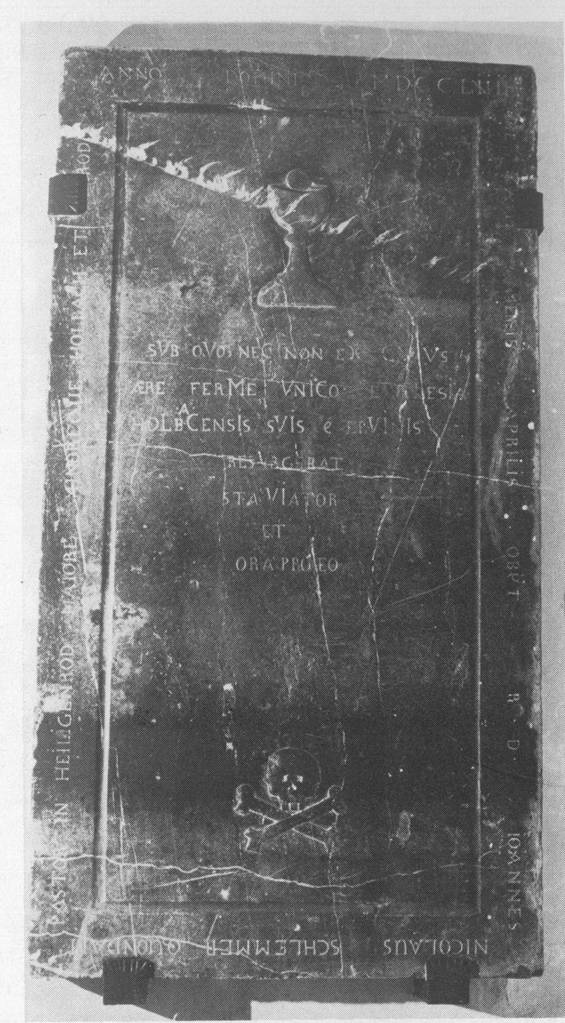 ANNO DOMINI MDCCLIII
MENSIS APRILIS OBIIT R. D. IOANNES
NICOLAUS SCHLEMMER QUONDAM
PASTOR IN HEILIGENROD MAIORE HOLBACH ET
SVB QVO NEC NON EX
ÆRE FERME VNICO ECCLESIA
HOLBACENSIS SVIS E
RESVRGEBAT
STA VIATOR
ET
ORA PRO EO